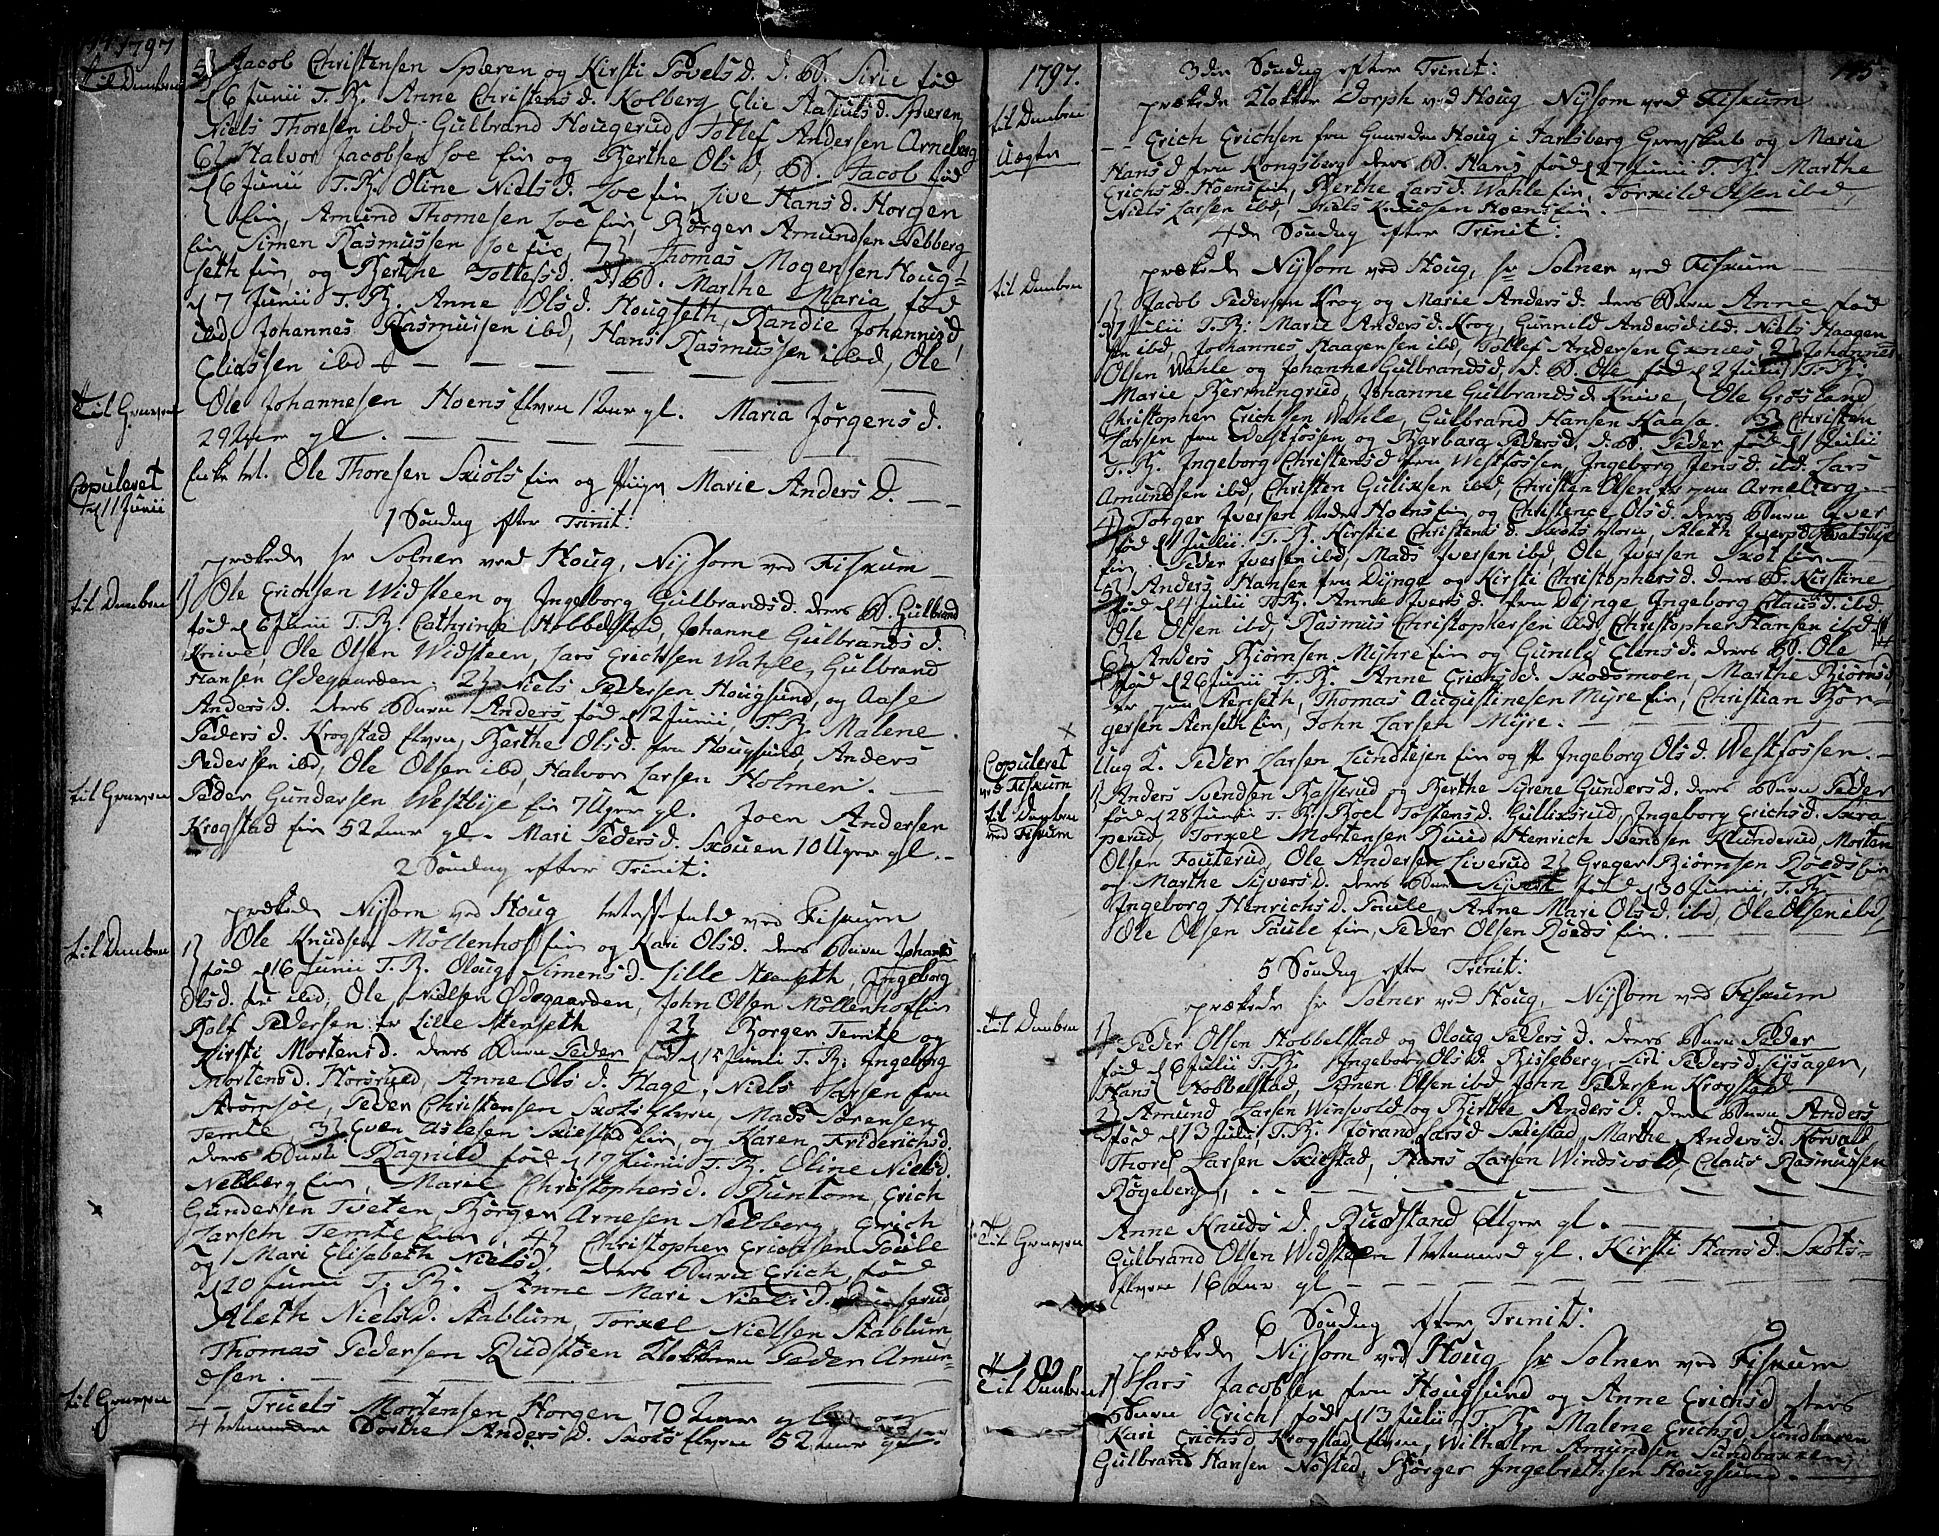 1797
til Daaben
5) Jacob Christensen Speren og Kirsti Povels d. d. B. Sirie fød
d 6 Junii T. B. Anne Christens d. Kolberg, Elie Aslaks d. Speren,
Niels Thoresen ibd, Gulbrand Hougerud, Tollef Andersen Arneberg
6) Halvor Jacobsen Loe Eie og Berthe Ols d, B. Jacob fød
d 6 Junii T. B. Oline Niels d. Loe Eie, Sive Hans d. Horgen
Eie, Amund Thomesen Loe Eie, Børger Amundsen Nebberg
Eie Simen Rasmussen Loe Eie, 7) Thomas Mogensen Houg-
seth Eie og Berthe Tolles d. d. B. Marthe Maria fød
d 7 Junii T. B. Anne Ols d. Hougseth, Randie Johannisd,
ibd, Johannes Rasmussen ibd, Hans Rasmussen ibd, Ole
Eliassen ibd
Til Graven
Ole Johannesen Hoens Elven 12 aar gl. Maria Jørgens d.
29 aar gl.
Copuleret
d 11 Junii
Enke m. Ole Thoresen Skiøls Eie og Pigen Marie Anders d.
1 Søndag efter Trinit:
prækede hr Solner ved Houg, Nyssom ved Fiskum
til Daaben
1) Ole Erichsen Widsteen og Ingeborg Gulbrands d. deres B. Gulbrand
fød d 6 Junii T. B. Cathrine Hobbelstad, Johanne Gulbrands d.
Knive, Ole Olsen Widsteen, Lars Erichsen Wahle, Gulbrand
Hansen Ødegaarden. 2) Niels Pedersen Hougsund, og Aase
Anders d. deres Barn Anders fød d 2 Junii, T. B. Malene
Peders d. Krogstad Elven, Berthe Ols d. fra Hougsund, Anders
Pedersen ibd, Ole Olsen ibd, Halvor Larsen Holmen.
til Graven
Peder Gundersen Westbye Eie 7 Uger gl. Joen Andersen
Krogstad Eie 52 aar gl. Mari Peders d. Skouen 10 Uger gl.
2 Søndag efter Trinit:
prækede Nyssom ved Houg Messefald ved Fiskum
til Daaben
1) Ole Knudsen Möllenhof Eie og Kari Ols d. deres Barn Johanes
fød d 16 Junii T. B. Oloug Simens d. Lille Stenseth, Ingeborg
Ols d. ibd, Ole Nielsen Ødegaarden, John Olsen Möllenhof Eie
Rolf Pedersen Lille Stenseth 2) Børger Temte og
Kirsti Mortens d. deres Barn Peder fød d 15 Junii T. B. Ingeborg
Mortens d. Horsrud, Anne Ols d. Hage, Niels Larsen fra
Strømsøe, Peder Christensen Skots Elven, Mads Sørensen
Temte 3) Even Aslesen Skiestad Eie og Karen Friderichs d.
deres Barn Ragnild fød d 17 Junii T. B. Oline Niels d.
Nebberg Eie, Marie Christophers d. Runtom, Erich
Gundersen Tveten, Børger Arnesen Nebberg, Erich
Larsen Temte Eie, 4) Christopher Erichsen Foule
og Mari Elisabeth Niels d. deres Barn Erich, fød
d 20 Junii T. B. Anne Mari Niels d.
Aleth Niels d. Stablum, Torkel Nielsen Stablum,
Thomas Pedersen Rudstøen Klokkeren Peder Amun-
dsen.
til Graven
Truels Mortensen Horgen 70 aar gl og
4 Maaneder Dorthe Anders d. Skots Elven 52 aar gl.
1797.
115
3de Søndag efter Trinit:
prækede Klokker Dorph ved Houg Nyssom ved Fiskum
til Daaben
Uægte
Erich Erichsen fra Gaarden Houg i Jarlsberg Grevskab og Maria
Hans d fra Kongsberg deres B. Hans fød d 27 Junii T. B. Marthe
Erichs d. Hoens Eie, Berthe Lars d. Wahle Eie, Torkild Olsen ibd,
Niels Larsen ibd, Niels Knudsen Hoens Eie.
4de Søndag efter Trinit:
prækede Nyssom ved Houg, hr Solner ved Fiskum
til Daaben
1) Jacob Pedersen Krog og Marie Anders d. deres Barn Anne fød
d 1 Julii T. B: Marie Anders d. Krog, Gunnild Anders d ibd. Niels Haagen
sen ibd, Johannes Haagensen ibd Tollef Andersen Exnes, 2) Johannes
Olsen Wahle og Johanne Gulbrands d. d. B. Ole fød d 2 Julii, T. B:
Marie Bermingrud, Johanne Gulbrands d Knive, Ole Grosland
Christopher Erichsen Wahle, Gulbrand Hansen Kaasa. 3) Christen
Larsen fra Westfossen og Barbara Peders d. d. B. Peder fød d 1 Julii
T. B. Ingeborg Christens d. fra Westfossen, Ingeborg Jens d. ibd. Lars
Amundsen ibd, Christen Gulixen ibd, Christen Olsen Arneberg.
4) Torger Iversen Hoens Eie og Christence Ols d. deres Barn Iver
fød d 1 Julii. T. B. Kirstie Christens d. Skots moen, Aleth Ivers d Hvalsbye
Eie, Peder Iversen ibd, Mads Iversen ibd, Ole Iversen Skot Eie
5) Anders Hansen fra Dynge og Kirsti Christophers d. deres B. Kirstine
fød d 4 Julii T. B. Anne Ivers d. fra Dynge, Ingeborg Claus d. ibd.
Ole Olsen ibd, Rasmus Christophersen ibd Christopher Hansen ibd
6) Anders Biørnsen Myhre Eie og Gunild Elens d. deres B. Ole
fød d 26 Junii T. B. Anne Erichs d. Skodsmoen, Marthe Biørns d
Stenseth, Thomas Augustinesen Myre Eie, Christian Bør-
gersen Stenseth Eie, John Larsen Myre.
Copuleret
ved Fiskum
Ung K. Peder Larsen Lundtejen Eie og P. Ingeborg Ols d. Westfossen.
til Daaben
ved Fiskum
1) Anders Svendsen Basserud og Berthe Syrene Gunders d. deres Barn Peder
fød d 28 Junii T. B. Boel Tostens d. Gulliksrud, Ingeborg Erichs d. Skra-
perud, Torkel Mortensen Ruud Henrich Svendsen Klunderud, Morten
Olsen Fouterud, Ole Andersen Liverud 2) Greger Biørnsen Roeds Eie
og Marthe Syvers d. deres Barn Syvert fød d 30 Junii, T. B.
Ingeborg Henrichs d. Foule, Anne Mari Ols d. ibd, Ole Olsen ibd,
Ole Olsen Foule Eie, Peder Olsen Roeds Eie.
5 Søndag efter Trinit:
prækede hr Solner ved Houg, Nyssom ved Fiskum
til Daaben
1) Peder Olsen Hobbelstad og Oloug Peders d. deres Barn Peder
fød d 6 Julii T. B. Ingeborg Ols d. Bisseberg, Siri Peders d,
Hans Hobbelstad, Simen Olsen ibd John Pedersen Krogstad
2) Amund Larsen Winsvold og Birthe Anders d. deres Barn Anders
fød d 13 Julii T. B. Jorand Lars d Skiestad, Marthe Anders d. Korvald
Thorel Larsen Skiestad, Hans Larsen Windsvold, Claus Rasmussen
Røgeberg,
Til Graven
Anne Knuds d. Rudstand 6 Uger gl.
Gulbrand Olsen Widsteen 1 Maaned gl. Kirsti Hans d. Skots-
Elven 16 aar gl
6 Søndag efter Trinit:
prækede Nyssom ved Houg hr Solner ved Fiskum
Til Daaben
1) Lars Jacobsen fra Hougsund og Anne Erichs d deres
Barn Erich fød d 13 Julii T. B. Malene Erichs d. Sundbakken
Kari Erichs d, Krogstad Elven, Wilhelm Amundsen Sundbakken,
Gulbrand Hansen Nøsted, Børger Ingebrethsen Hougsund.